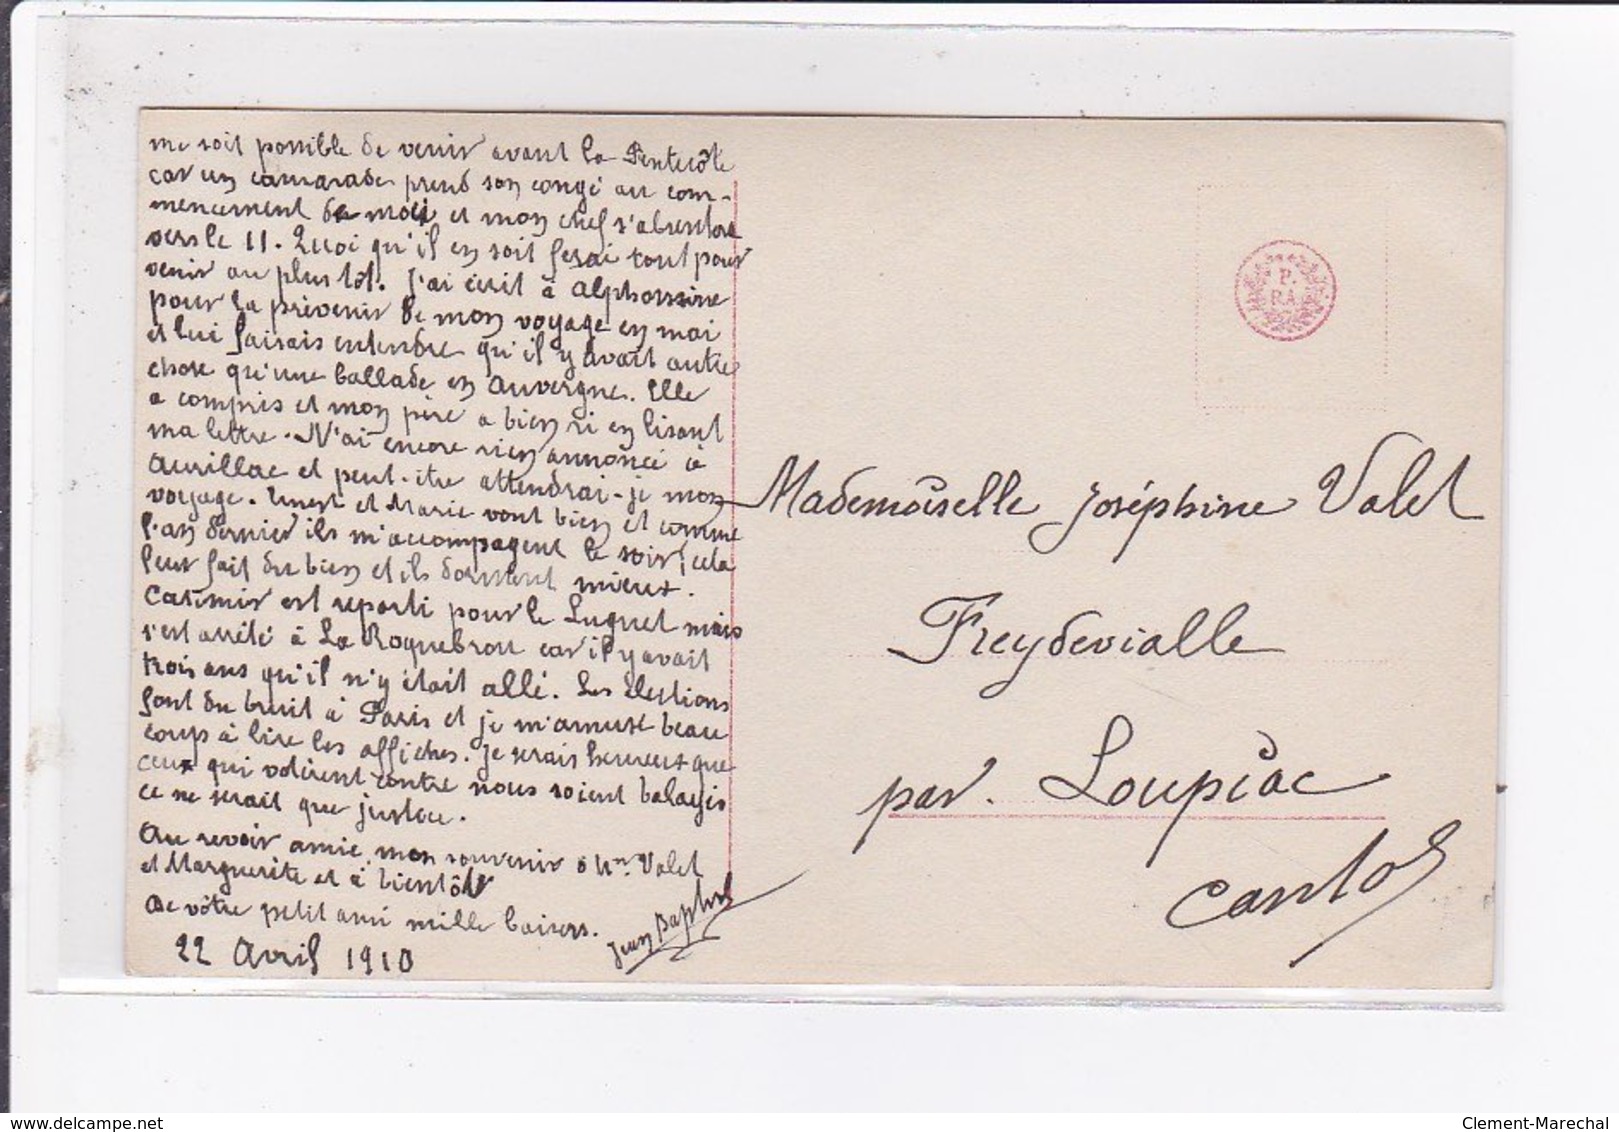 me soit possible de venir avant la Pentecôte
car un camarade prend son congé au com-
mencement de mai et mon chef s'absentera
vers le 11. Quoi qu'il en soit ferai tout pour
venir au plus tôt. J'ai écrit à Alphonsine
pour la prévenir de mon voyage en mai
et lui faisais entendre qu'il y avait autre
chose qu'une ballade en Auvergne. Elle
a compris et mon père a bien ri en lisant
ma lettre. N'ai encore rien annoncé à
Aurillac et peut-être attendrai-je mon
voyage. Ernest et Marie vont bien et comme
l'an dernier ils m'accompagnent le soir, cela
leur fait du bien et ils dorment mieux.
Casimir est reparti pour le Luguet mais
s'est arrêté à La Roquebrou car il y avait
trois ans qu'il n'y était allé. Les Elections
font du bruit à Paris et je m'amuse beau
coup à lire les affiches. Je serais heureux que
ceux qui votèrent contre nous soient balayés
ce ne serait que justice.
Au revoir amie, mon souvenir à Mme Valet
et Marguerite et à bientôt
De vôtre petit ami mille baisers.
Jean Baptiste
22 Avril 1910
P.
RA.
Mademoiselle Joséphine Valet
Freydevialle
par. Loupiac
Cantal
Clement-Marechal